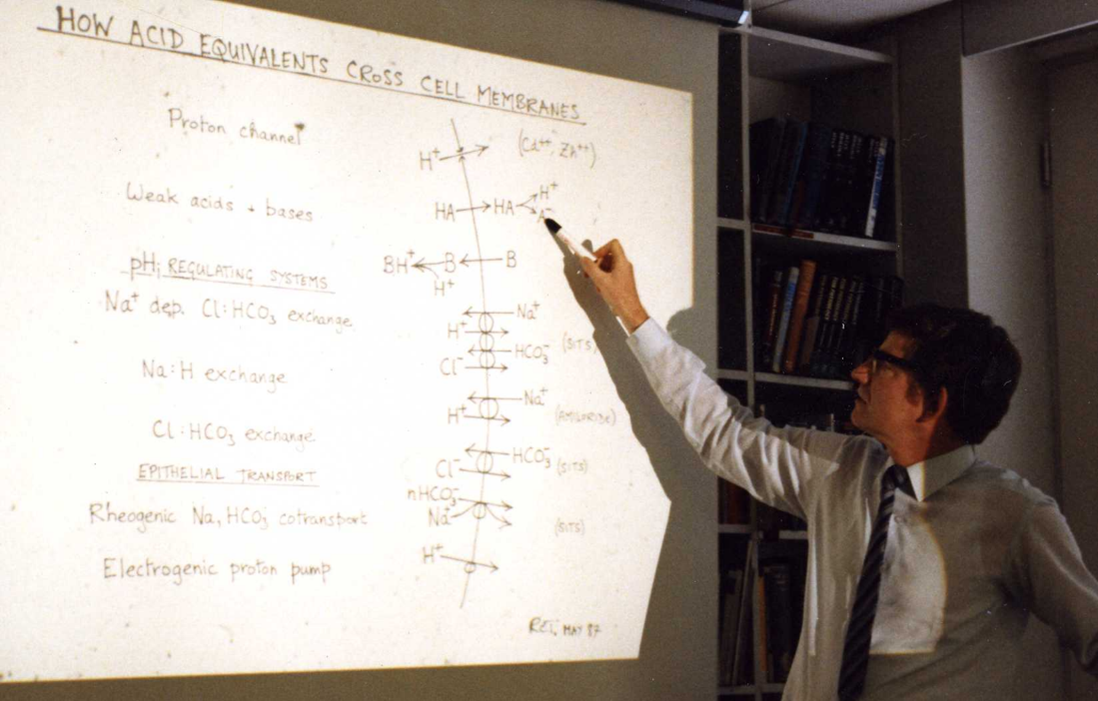 HOW ACID EQUIVALENTS CROSS CELL MEMBRANES
Proton channel
H⁺ (Cd⁺⁺, Zn⁺⁺)
Weak acids + bases
HA HA H⁺
A⁻
BH⁺ B B
H⁺
pHi REGULATING SYSTEMS
Na⁺ dep. Cl:HCO₃ exchange
Na⁺
H⁺
HCO₃⁻ (SITS)
Cl⁻
Na:H exchange
Na⁺
H⁺ (AMILORIDE)
Cl:HCO₃ exchange
HCO₃⁻ (SITS)
Cl⁻
EPITHELIAL TRANSPORT
nHCO₃⁻
Rheogenic Na, HCO₃ cotransport
Na (SITS)
Electrogenic proton pump
H⁺
MAY 87